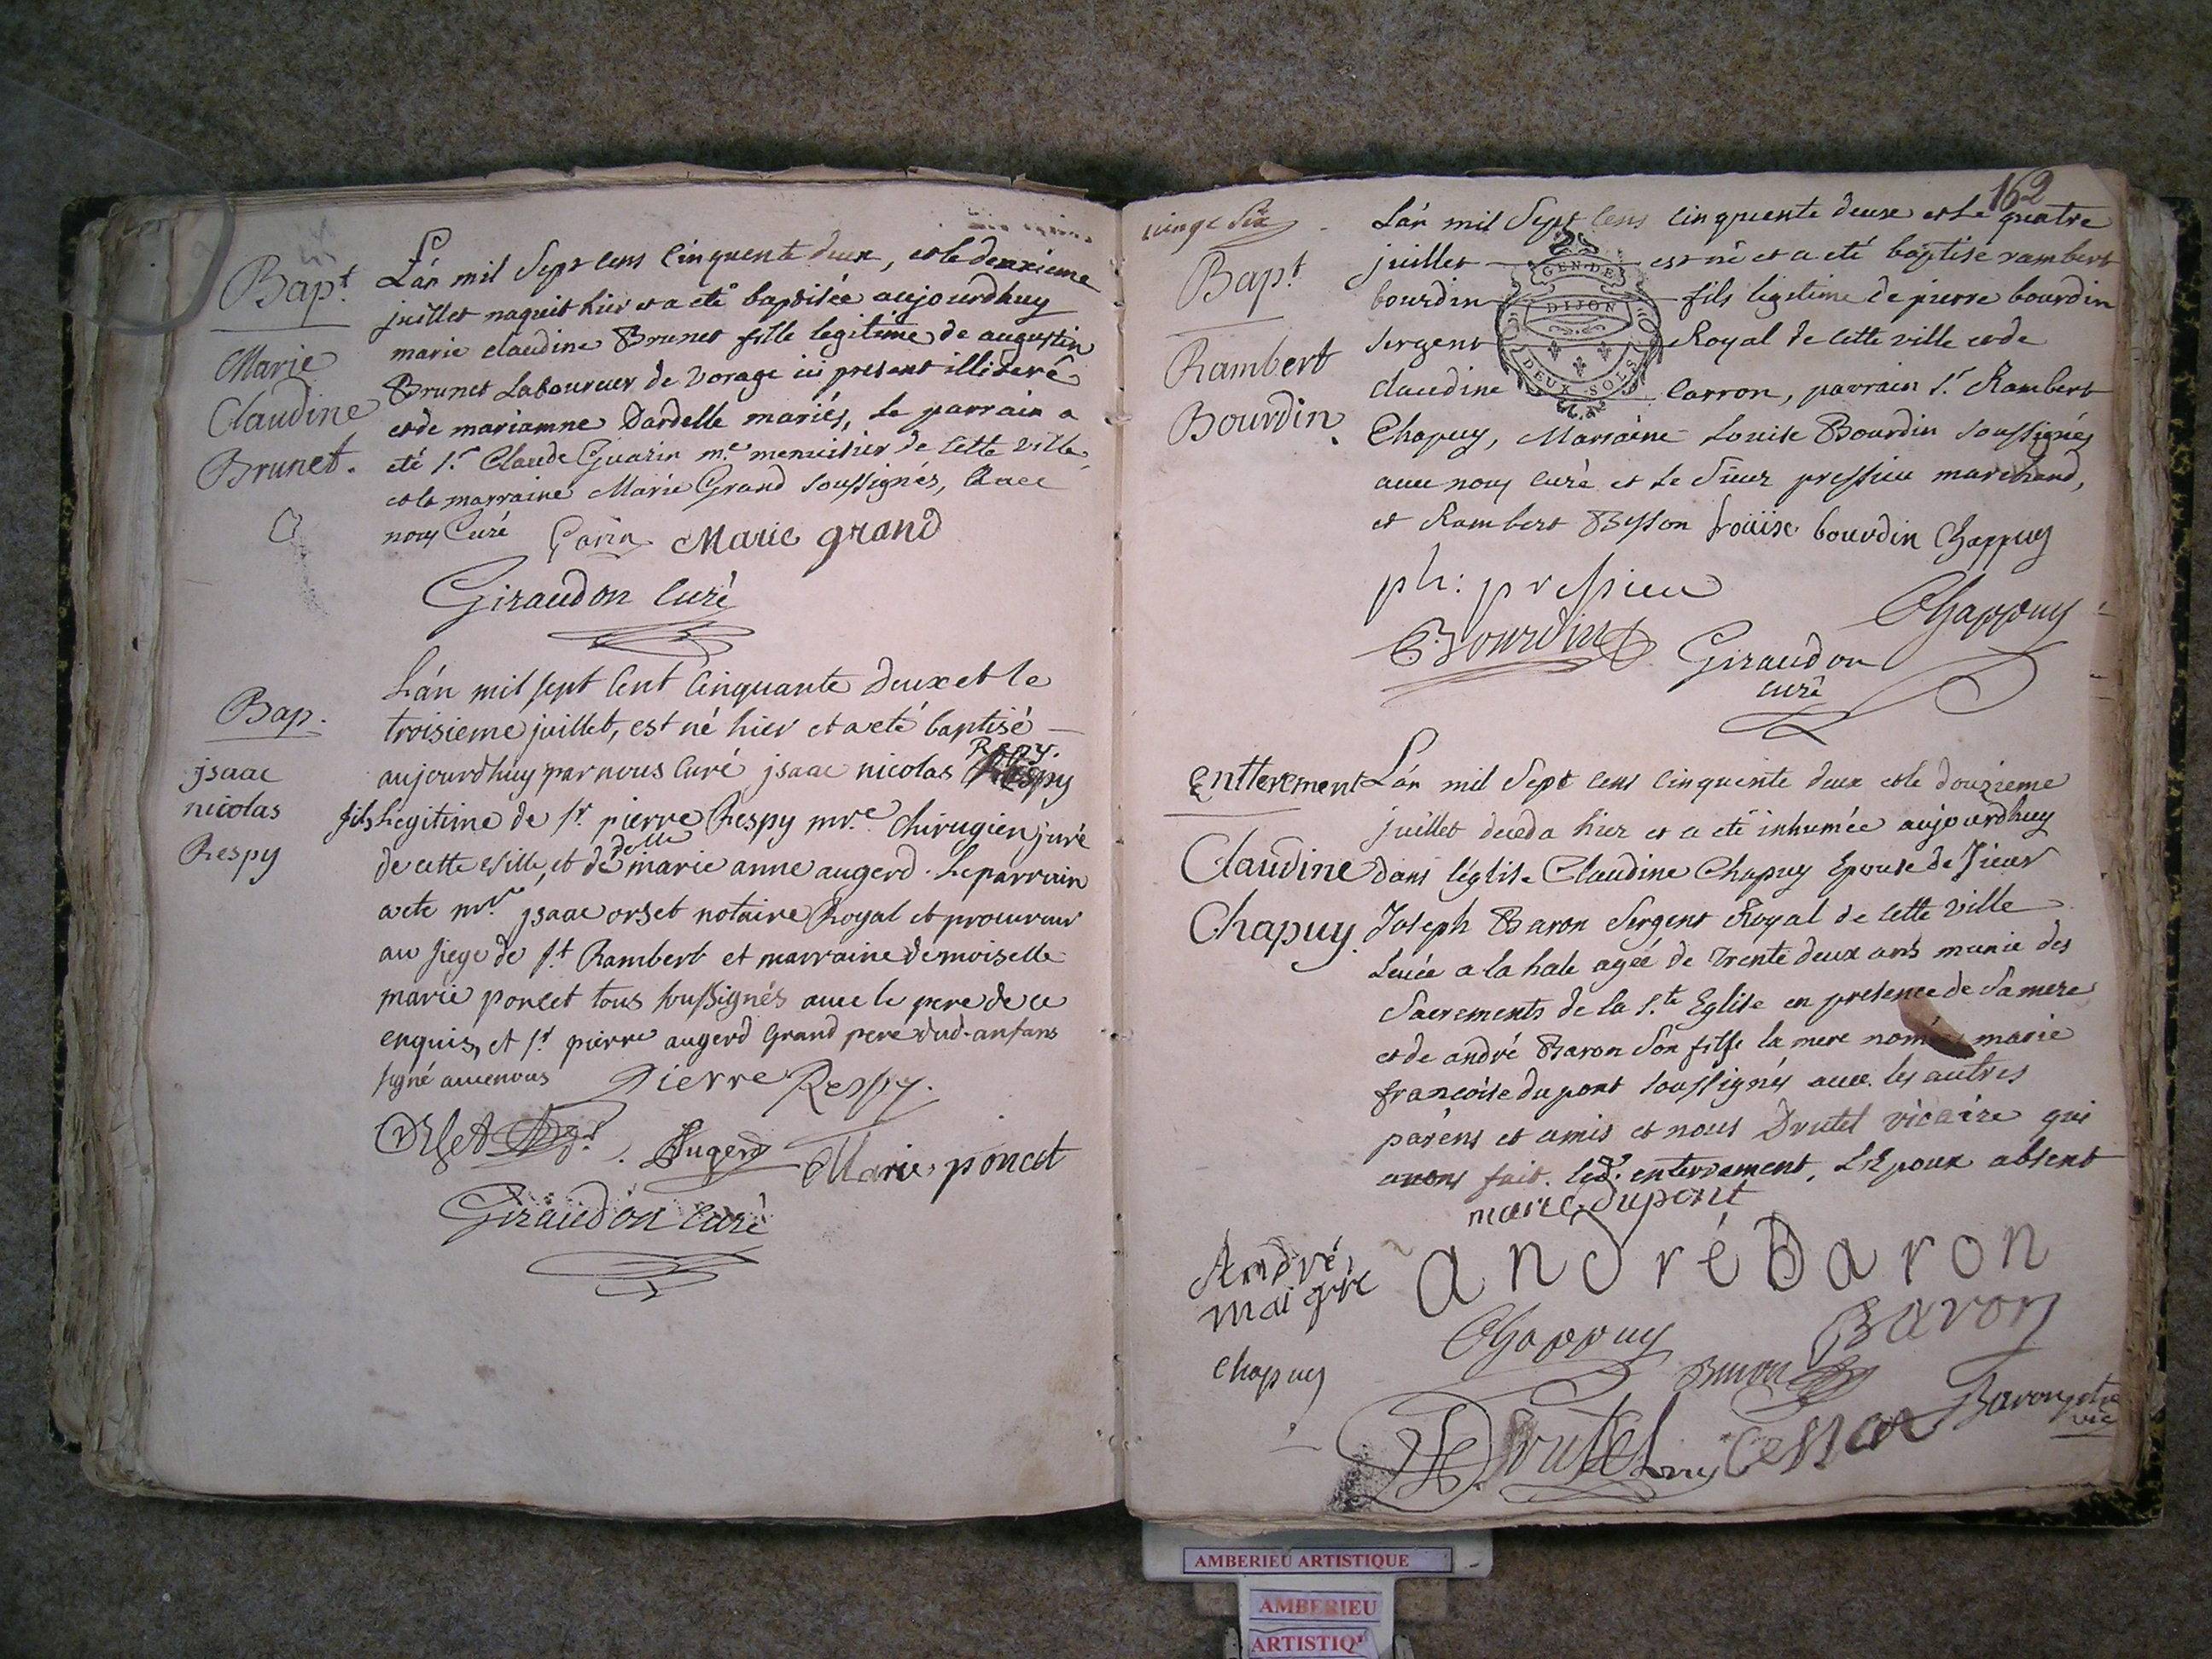 Bapt.
Marie
Claudine
Brunet.
L'an mil Sept cens Cinquente deux, et le deuxieme
juillet naquit hier et a eté baptisée aujourdhuy
marie claudine Brunet fille legitime de augustin
Brunet Laboureur de Vorage ici present illiteré
et de mariamne Dardelle mariés, Le parrain a
eté Sr. Claude Guarin me. menuisier de Cette ville,
et la marraine Marie Grand soussignés, avec
nous Curé Garin Marie grand
Giraudon curé
Bap.
jsaac
nicolas
Respy
L'an mil sept cent Cinquante deux et le
troisieme juillet, est né hier et a eté baptisé
aujourdhuy par nous Curé jsaac nicolas Respy.
fils Legitime de Sr. pierre Respy mre. Chirugien juré
de cette ville, et de delle marie anne augerd. Le parrain
a ete mre. jsaac orset notaire Royal et procureur
au siege de St. Rambert et marraine demoiselle
marie poncet tous soussignés avec le pere de ce
enquis, et Sr. pierre augerd Grand pere dud. anfans
signé avec nous Pierre Respy.
Orset Augerd Marie poncet
Giraudon curé
162
vingt six
Bapt.
Rambert
Bourdin.
L'an mil Sept cens cinquente deux et le quatre
juillet est né et a eté baptisé rambert
bourdin fils legitime de pierre bourdin
sergent Royal de cette ville et de
claudine Carron, parrain Sr. Rambert
Chapuy, Marraine Louise Bourdin soussignés
avec nous curé et le Sieur pressieu marchand,
et Rambert Besson louise bourdin Chappuy
GEN. DE
DIJON
DEUX SOLS
ph: pressieu
Chappuy
Bourdin Giraudon
curé
Entterement
Claudine
Chapuy.
L'an mil Sept cens cinquente deux et le douzieme
juillet deceda hier et a eté inhumée aujourdhuy
dans l'église Claudine Chapuy Epouse de Sieur
Joseph Baron Sergent Royal de cette ville
Levée a la hale agée de trente deux ans munie des
Sacrements de la Ste. Eglise en presence de Sa mere
et de andré Baron Son fils la mere nomée marie
francoise du pont soussignés avec les autres
parens et amis et nous Drutel vicaire qui
avons fait led. enterrement, L'Epoux absent
marie dupont
André
maigre
andré Baron
Chappuy Baron
chapuy
Buron
Baron ptre
vic
Drutel